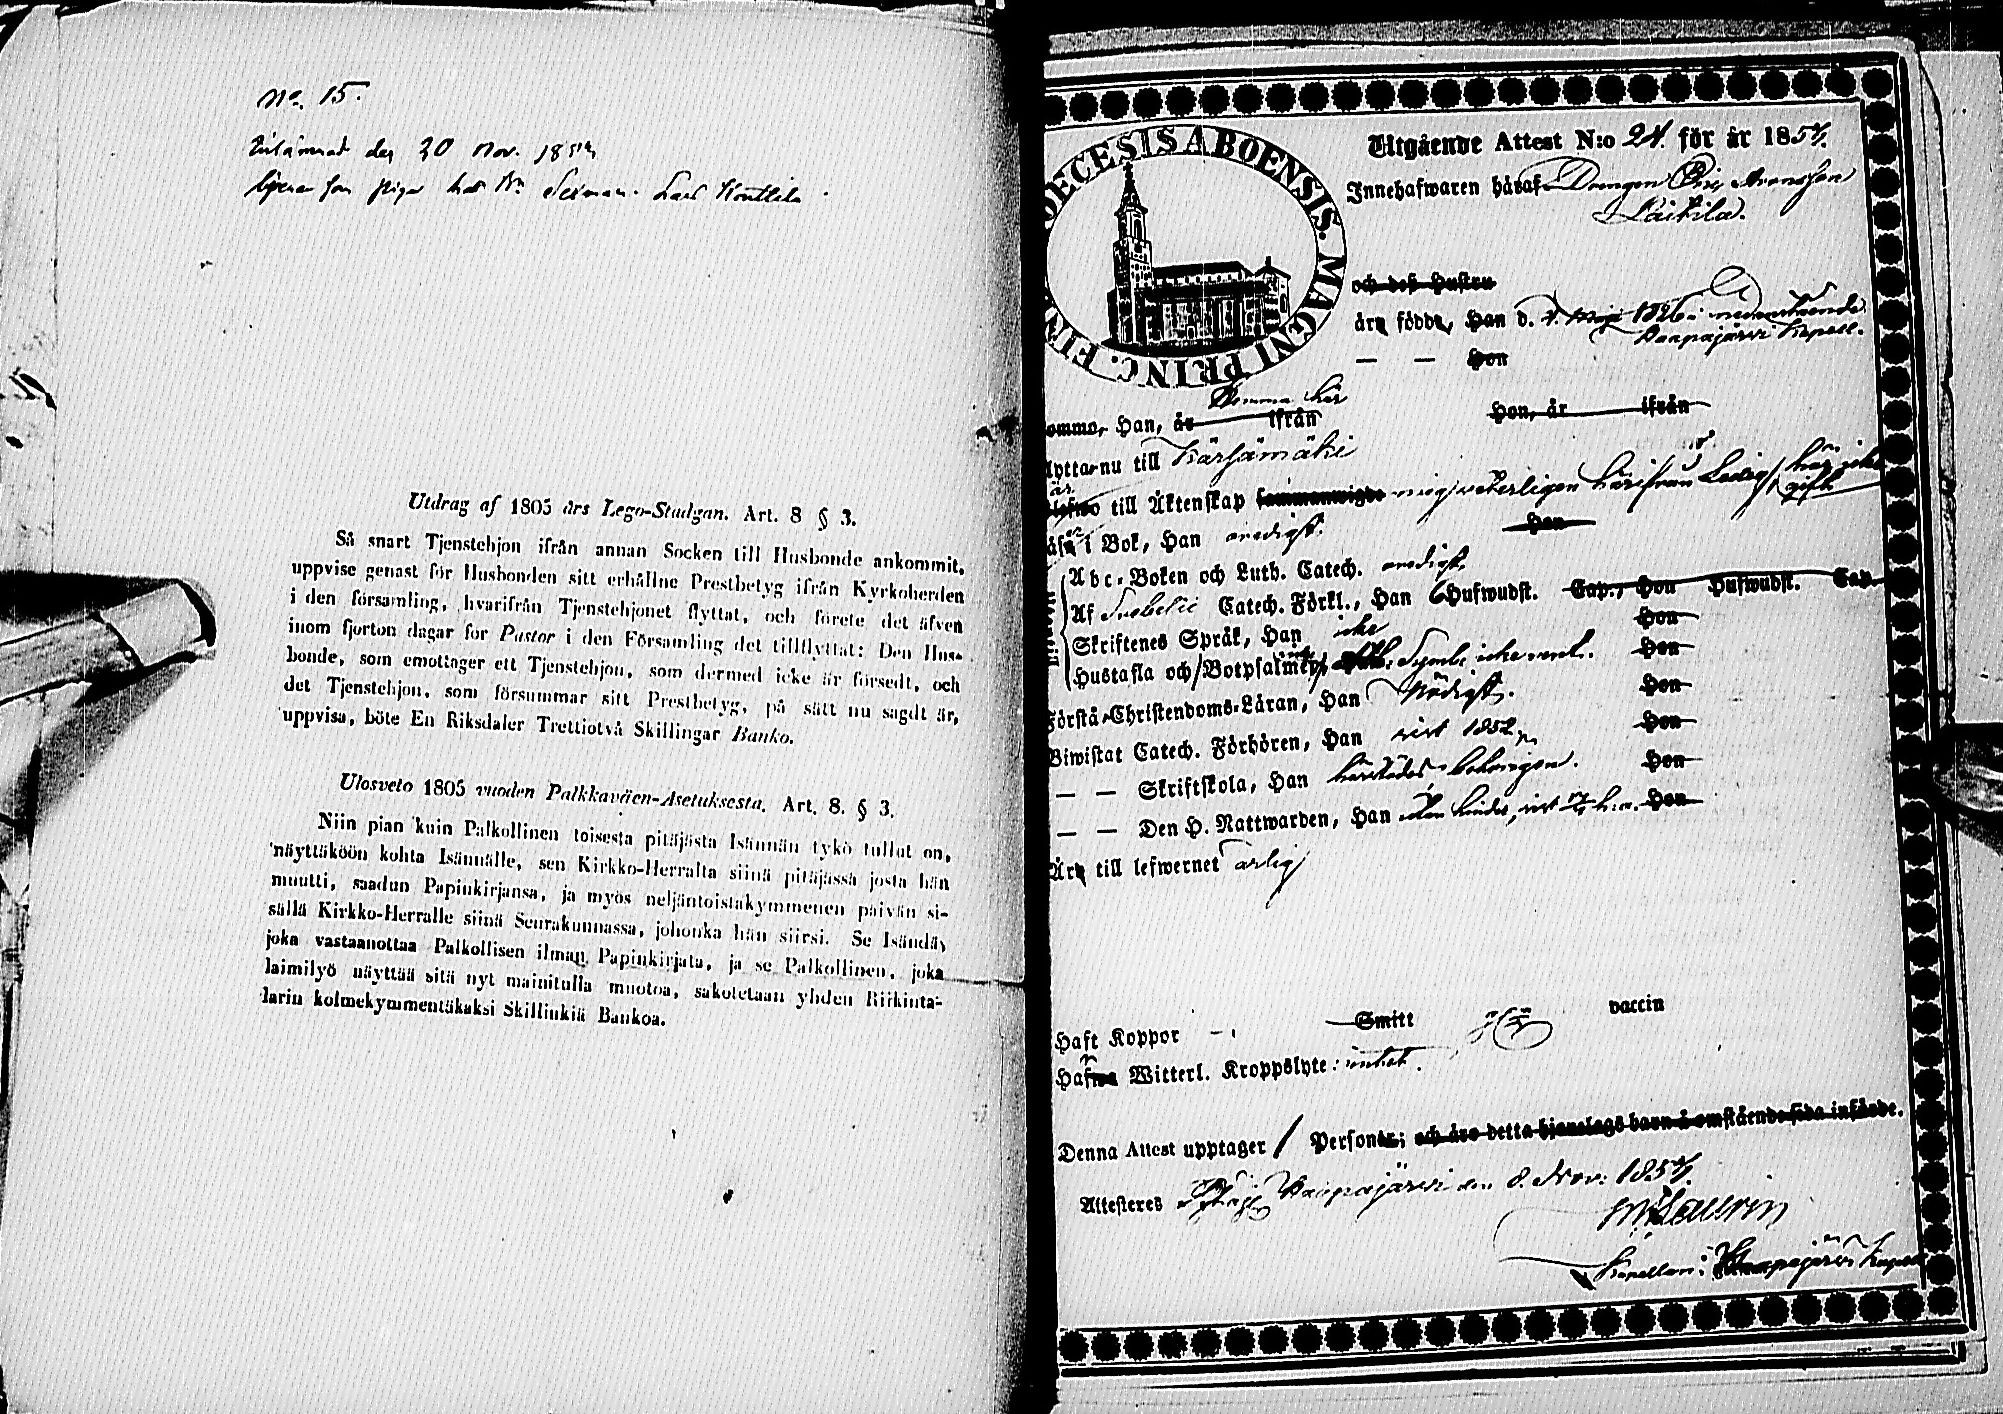 No. 15.
den 20 Nov. 1854
Utdrag af 1805 års Lego-Stadgan. Art. 8 § 3.
Så snart Tjenstehjon ifrån annan Socken till Husbonde ankommit,
uppvise genast för Husbonden sitt erhållne Prestbetyg ifrån Kyrkoherden
i den församling, hvarifrån Tjenstehjonet flyttat, och förete det äfven
inom fjorton dagar for Pastor i den Församling det tillflyttat: Den Hus-
bonde, som emottager ett Tjenstehjon, som dermed icke är försedt, och
det Tjenstehjon, som försummar sitt Prestbetyg, på sätt nu sagdt är,
uppvisa, böte En Riksdaler Trettiotvå Skillingar Banko.
Ulosveto 1805 vuoden Palkkaväen-Asetuksesta. Art. 8. § 3.
Niin pian kuin Palkollinen toisesta pitäjästä Isännän tykö tullut on,
näyttäköön kohta Isännälle, sen Kirkko-Herralta siinä pitäjässä josta hän
muutti, saadun Papinkirjansa, ja myös neljäntoistakymmenen päivän si-
sällä Kirkko-Herralle siinä Seurakunnassa, johonka hän siirsi. Se Isändä,
joka vastaanottaa Palkollisen ilman Papinkirjata, ja se Palkollinen, joka
laimilyö näyttää sitä nyt mainitulla muotoa, sakotetaan yhden Riikinta-
larin kolmekymmentäkaksi Skillinkiä Bankoa.
DIOECESIS ABOENSIS. MAGNI PRINC. FIN
Utgående Attest N:o 24. för år 1854.
Innehafwaren häraf Drengen Aronsson
Laitila.
och deß Hustru
äro födde, Han d. 1826 i nedanstående
Haapajärvi Kapell.
— — Hon
komma här
omma, Han, år ifrån Hon, år ifrån
lytta nu till Kärsämäki
är
till Äktenskap sammanwigde mig veterligen härifrån Ledig, här icke
gift
i Bok, Han nödigt. Hon
Abc-Boken och Luth. Catech. nödigt.
Af Svebelii Catech. Förkl., Han 6 Hufwudst. Cap., Hon Hufwudst. Cap.
Skriftenes Språk, Han icke Hon
Hustafla och Botpsalmen, Symb. icke Hon
Förstå Christendoms-Läran, Han Nödigt. Hon
Biwistat Catech. Förhören, Han sist 1852 Hon
— — Skriftskola, Han härstädes behörigen. Hon
— — Den H. Nattwarden, Han utan hinder, sist Hon
Äro till lefwernet ärlig
Haft Koppor — Smitt vaccin
Hafwa Witterl. Kroppslyte: intet.
Denna Attest upptager 1 Personer; och äro detta hjonelags barn å omstående sida införde.
Attesteras Haapajärvi den 8. Nov: 1854.
Laurin
Kapellan i Haapajärvi Kapell